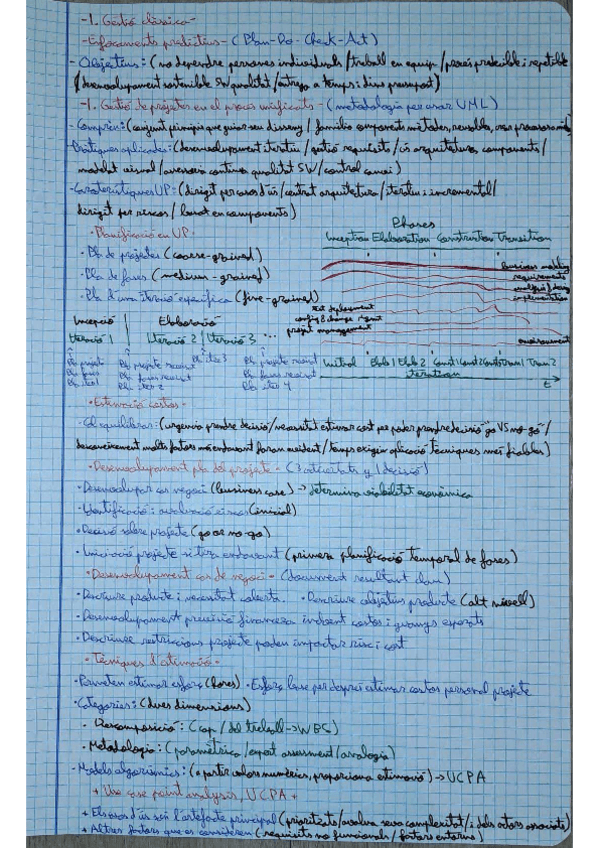 -1. Gestió clàssica-
-Enfocaments predictius- (Plan-Do-Check-Act)
-Objectius: (no dependre persones individuals/treball en equip/procés predecible i repetible
/desenvolupament sostenible SW qualitat/entrega a temps i dins pressupost)
-1. Gestió de projectes en el procés unificat- (metodologia per usar UML)
-Comprèn: (conjunt principis que guiar seu disseny/família components mètodes, reusable,
-Pràtiques aplicades: (desenvolupament iteratiu/gestió requisits/ús arquitectura components/
modelat visual/ contínua qualitat SW/control canvi)
-Característiques UP: (dirigit per casos d'ús/centrat arquitectura/iteratiu i incremental/
dirigit per riscos/basat en components)
·Planificació en UP·
·Pla de projectes (coarse-grained)
·Pla de fases (medium-grained)
·Pla d'una iteració específica (fine-grained)
Phases
Inception Elaboration Construction Transition
business modeling
requirements
analysis & design
implementation
test deployment
config & change mgmt
project management
environment
Initial Elab1 Elab2 Const1 Const2 Tran2
iteration
t
Incepció | Elaboració
Iteració 1 | Iteració 2 / Iteració 3 ...
Pla projecte Pla projecte revisat Pla iter 3 Pla projecte revisat
Pla fases Pla fases revisat Pla fases revisat
Pla iter 1 Pla iter 2 Pla iter 4
·Estimació costos·
-Cal equilibrar: (urgència prendre decisió/necessitat estimar cost per poder prendre decisió "go VS no-go"/
desconeixement molts factors més endavant seran evident/temps exigeix aplicació tècniques més fiables)
·Desenvolupament pla del projecte- (3 activitats y 1 decisió)
·Desenvolupar cas negoci (business case) → determina viabilitat econòmica
·Identificació i avaluació riscos (inicial)
·Decisió sobre projecte (go or no-go)
·Iniciació projecte si tira endavant (primera planificació temporal de fases)
·Desenvolupament cas de negoci- (document resultant clau)
·Descriure producte i necessitat coberta. ·Descriure objectius producte (alt nivell)
·Desenvolupament previsió financera incloent costos i guanys esperats
·Descriure restriccions projecte poden impactar risc i cost
·Tècniques d'estimació·
·Permeten estimar esforç (hores) ·Esforç base per després estimar costos personal projecte
·Categories: (dues dimensions)
·Descomposició: (cap/del treball→WBS)
·Metodologia: (paramètrica/expert assessment/analogia)
-Models algorísmics: (a partir valors numèrics, proporciona estimació) → UCPA
+ Use case point analysis, UCPA +
+ Els casos d'ús són l'artefacte principal (prioritzats/avalua seva complexitat/i dels actors associats)
+ Altres factors que es consideren (requisits no funcionals/factors entorns)